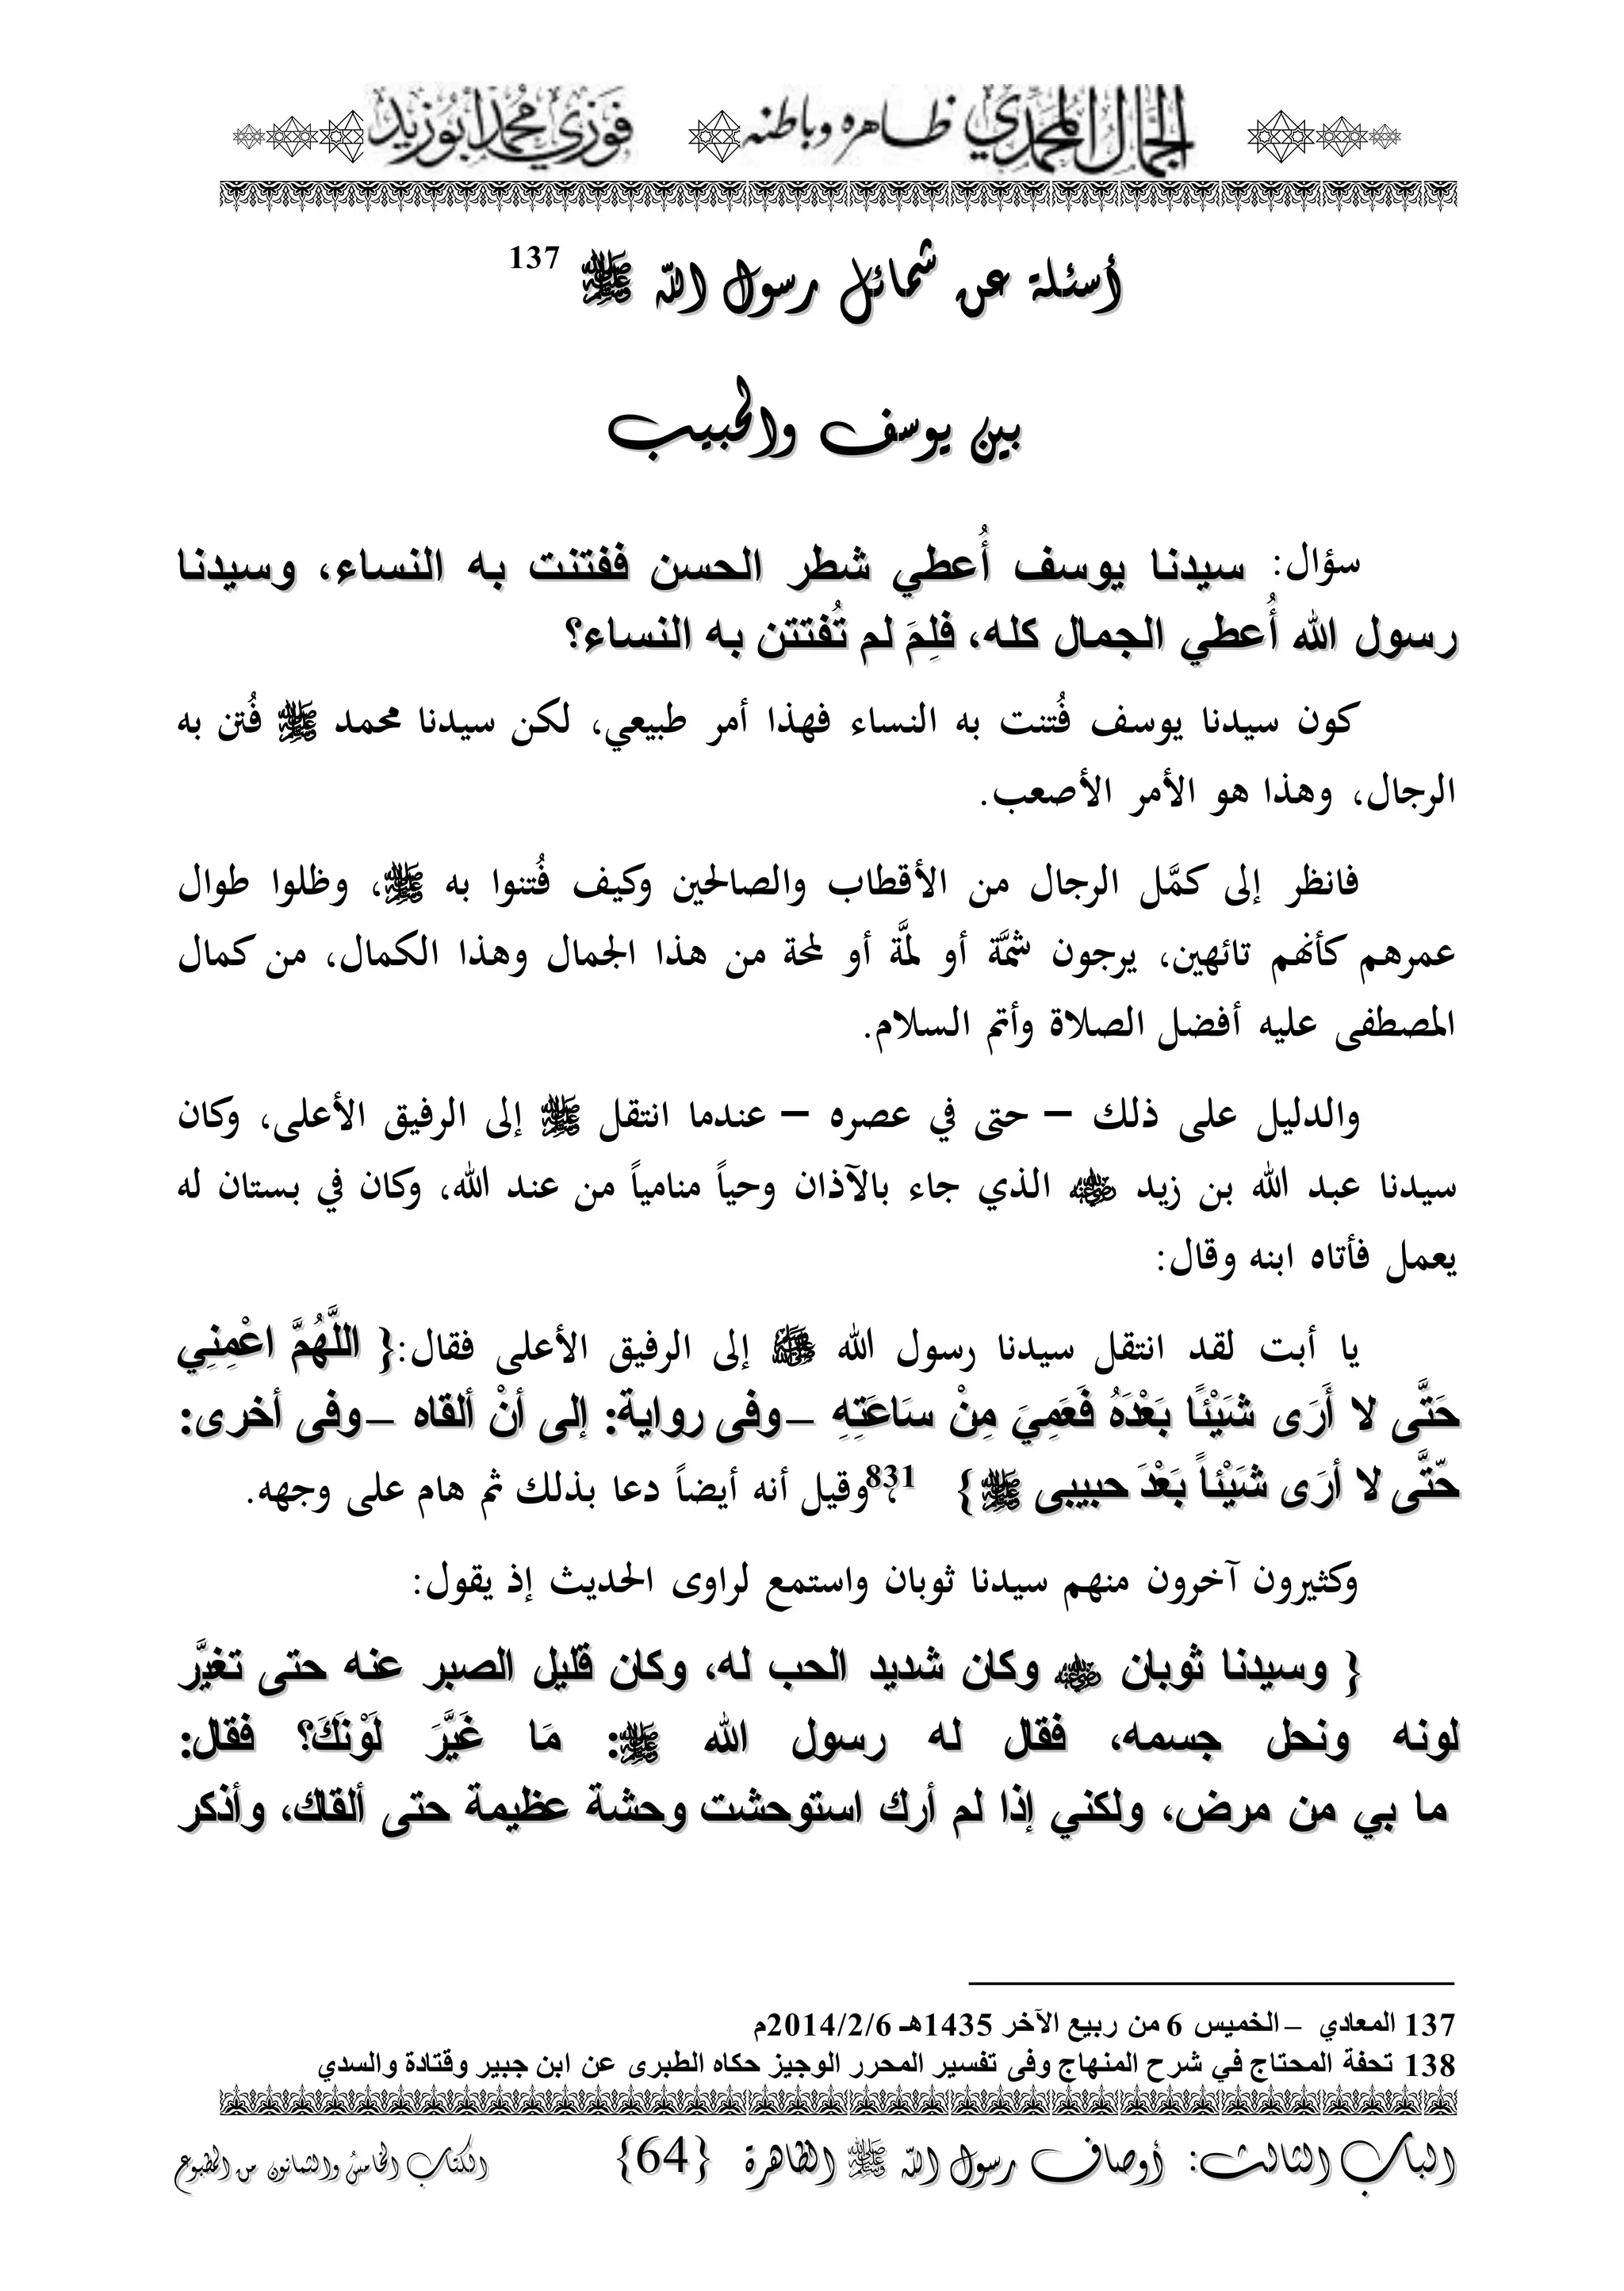 الجمال المحمدي ظاهره وباطنه فوزي محمد أبوزيد
أسئلة عن شمائل رسول الله ﷺ 137
بين يوسف والحبيب
سؤال: سيدنا يوسف أُعطي شطر الحسن ففتنت به النساء، وسيدنا
رسول الله أُعطي الجمال كله، فلِمَ لم تُفتتن به النساء؟
كون سيدنا يوسف فُتنت به النساء فهذا أمر طبيعي، لكن سيدنا محمد ﷺ فُتن به
الرجال، وهذا هو الأمر الأصعب.
فانظر إلى كمَّل الرجال من الأقطاب والصالحين وكيف فُتنوا به ﷺ، وظلوا طوال
عمرهم كأنهم تائهين، يرجون شمَّة أو لمَّة أو لمحة من هذا الجمال وهذا الكمال، من كمال
المصطفى عليه أفضل الصلاة وأتم السلام.
والدليل على ذلك – حتى في عصره – عندما انتقل ﷺ إلى الرفيق الأعلى، وكان
سيدنا عبد الله بن زيد رضي الله عنه الذي جاء بالآذان وحياً منامياً من عند الله، وكان في بستان له
يعمل فأتاه ابنه وقال:
يا أبت لقد انتقل سيدنا رسول الله ﷺ إلى الرفيق الأعلى فقال:{ اللَّهُمَّ اعْمِنِي
حَتَّى لا أَرَى شَيْئًا بَعْدَهُ فَعَمِيَ مِنْ سَاعَتِهِ –وفى رواية: إلى أنْ ألقاه –وفى أخرى:
حّتَّى لا أرَى شَيْئاً بَعْدَ حبيبى ﷺ } 831، وقيل أنه أيضاً دعا بذلك ثم هام على وجهه.
وكثيرون آخرون منهم سيدنا ثوبان واستمع لراوى الحديث إذ يقول:
{ وسيدنا ثوبان رضي الله عنه وكان شديد الحب له، وكان قليل الصبر عنه حتى تغيَّر
لونه ونحل جسمه، فقال له رسول الله ﷺ: مَا غَيَّرَ لَوْنَكَ؟ فقال:
ما بي من مرض، ولكني إذا لم أرك استوحشت وحشة عظيمة حتى ألقاك، وأذكر
137 المعادي – الخميس 6 من ربيع الآخر 1435هـ 2014/2/6م
138 تحفة المحتاج في شرح المنهاج وفى تفسير المحرر الوجيز حكاه الطبرى عن ابن جبير وقتادة والسدي
الباب الثالث: أوصاف رسول الله ﷺ الظاهرة {64} الكتاب الخامس والثمانون من المطبوع